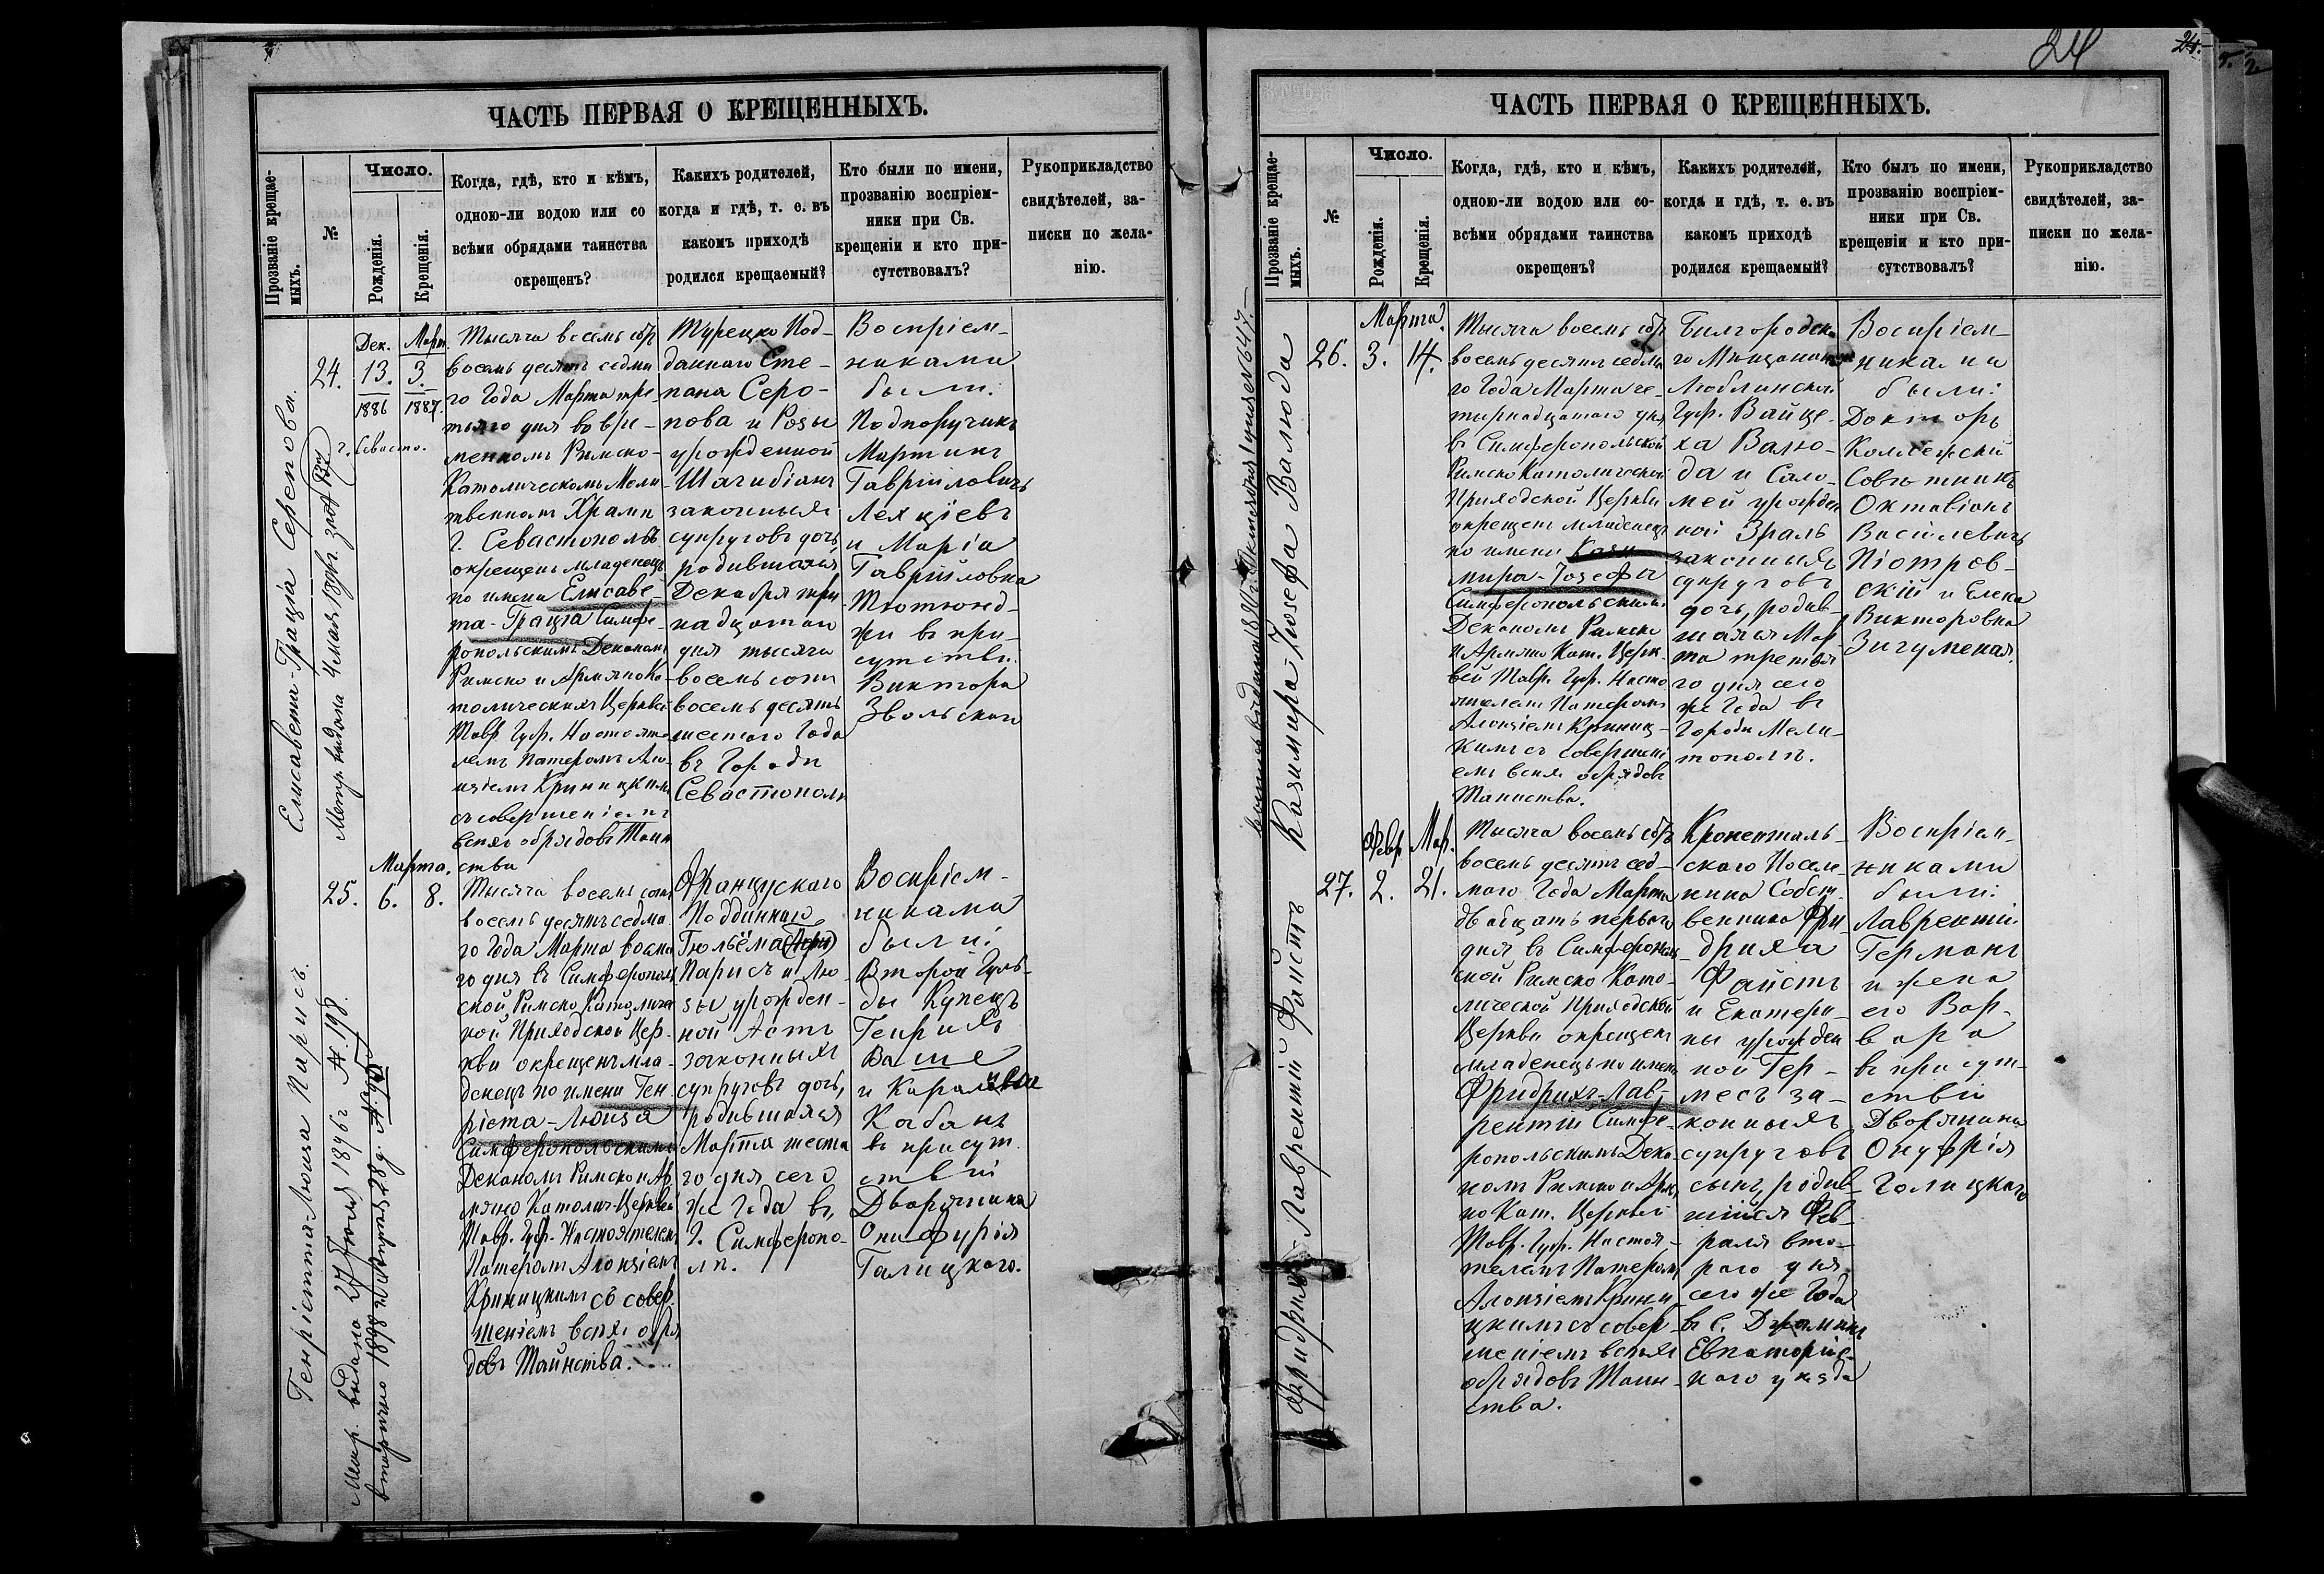 ЧАСТЬ ПЕРВАЯ О КРЕЩЕННЫХЪ.
Прозваніе крещае-
мыхъ.
№
Число.
Рожденія.
Крещенія.
Когда, гдѣ, кто и кѣмъ,
одною-ли водою или со
всѣми обрядами таинства
окрещенъ?
Какихъ родителей,
когда и гдѣ, т. е. въ
какомъ приходѣ
родился крещаемый?
Кто были по имени,
прозванію воспріем-
ники при Св.
крещеніи и кто при-
сутствовалъ?
Рукоприкладство
свидѣтелей, за-
писки по жела-
нію.
Елисавета-Грація Серепова.
24.
Дек.
13.
1886
Март.
3.
1887.
г. Севасто.
Тысяча восемь сотъ
восемь десятъ седма
го Года Марта тре-
тьяго дня во вре-
менномъ Римско-
Католическомъ Моли
твенномъ Храмѣ
г. Севастополѣ
окрещенъ младенецъ
по имени Елисаве-
та-Грація Симфе-
ропольскимъ Деканомъ
Римско и Армяно Ка
толическихъ Церквей
Тавр. Губ. Настояте
лемъ Патеромъ Ало
изіемъ Криницкимъ
съ совершеніемъ
всѣхъ обрядовъ Таин
ства
Турецко Под-
даннаго Сте-
пана Серо-
пова и Розы
урожденной
Шагибіанъ
законныхъ
супруговъ дочь,
родившаяся
Декабря три
надцатаго
дня тысяча
восемь сотъ
восемь десятъ
шестаго Года
въ Городѣ
Севастополѣ
Воспріем-
никами
были:
Подпоручикъ
Мартинъ
Гавріиловичъ
Лехціевъ
и Марія
Гавріиловна
Тютюнд-
жи въ при-
сутствіи
Виктора
Звольскаго
Генріетта-Люиза Парисъ.
Метр. выдано 27 Іюля 1896 г. №. 198.
25.
Марта.
6.
8.
Тысяча восемь сотъ
восемь десятъ седма
го Года Марта восма
го дня въ Симферополь
ской Римско Католиче
кой Приходской Цер-
кви окрещенъ мла-
денецъ по имени Ген
ріета-Люиза
Симферопольскимъ
Деканомъ Римско и Ар
мяно Католич. Церквей
Тавр. Губ. Настоятелемъ
Патеромъ Алоизіемъ
Криницкимъ съ совер
шеніемъ всѣхъ обря
довъ Таинства.
Французскаго
Подданнаго
Гюльёма
Парисъ и Лю
зы урожден-
ной Астъ
законныхъ
супруговъ дочь,
родившаяся
Марта шеста
го дня сего
же Года въ
г. Симферопо-
лѣ.
Воспріем-
никами
были:
Второй Гуль-
ды Купецъ
Генрихъ
Ваше
и Каролина
Кабанъ
въ присут
ствіи
Дворянина
Онуфурія
Галицкаго.
24
24.
ЧАСТЬ ПЕРВАЯ О КРЕЩЕННЫХЪ.
Прозваніе крещае-
мыхъ.
№
Число.
Рожденія.
Крещенія.
Когда, гдѣ, кто и кѣмъ,
одною-ли водою или со-
всѣми обрядами таинства
окрещенъ?
Какихъ родителей,
когда и гдѣ, т. е. въ
какомъ приходѣ
родился крещаемый?
Кто былъ по имени,
прозванію воспріем-
ники при Св.
крещеніи и кто при-
сутствовалъ?
Рукоприкладство
свидѣтелей, за-
писки по жела-
нію.
Казимира-Іозефа Валюда
26.
Марта.
3.
14.
Тысяча восемь сотъ
восемь десятъ седма
го Года Марта че-
тырнадцатаго дня
въ Симферопольской
Римско Католической
Приходской Церкви
окрещенъ младенецъ
по имени Кази
мира-Іозефа
Симферопольскимъ
Деканомъ Римско
и Армяно Кат. Церк
вей Тавр. Губ. Насто
ятелемъ Патеромъ
Алоизіемъ Криниц-
кимъ съ совершені
емъ всѣхъ обрядовъ
Таинства.
Билгородска
го Мѣщанина
Люблинской
Губ. Войце-
ха Валю-
да и Сало-
меи урожден
ной Зраль
законныхъ
супруговъ
дочь, родив-
шаяся Мар
та третья
го дня сего
же Года въ
Городѣ Мели-
тополѣ.
Воспріем-
никами
были:
Докторъ
Коллежскій
Совѣтникъ
Октавіанъ
Василевичъ
Піотров-
скій и Елена
Викторовна
Зигуменая.
Фридрихъ-Лаврентій Фаистъ
27.
Февр.
2.
Мар.
21.
Тысяча восемь сотъ
восемь десятъ сед-
маго Года Марта
двадцать перваго
дня въ Симферополь
ской Римско Като-
лической Приходской
Церкви окрещенъ
младенецъ по имени
Фридрихъ-Лав-
рентій Симфе-
ропольскимъ Дека-
номъ Римско и Армя
но Кат. Церквей
Тавр. Губ. Настоя-
телемъ Патеромъ
Алоизіемъ Крини
цкимъ съ совер-
шеніемъ всѣхъ
обрядовъ Таин-
ства.
Кроненталь-
скаго Поселе-
нина Собст
венника Фри
дриха
Фаистъ
и Екатери-
ны урожден
ной Гер-
месъ за-
конныхъ
супруговъ
сынъ, родив-
шійся Фев-
раля вто-
раго дня
сего же Года
въ с. Джаминъ
Евпаторій-
скаго уѣзда
Воспріем-
никами
были:
Лаврентій
Германъ
и жена
его Вар-
вара
въ присут-
ствіи
Дворянина
Онуфрія
Голицкаго